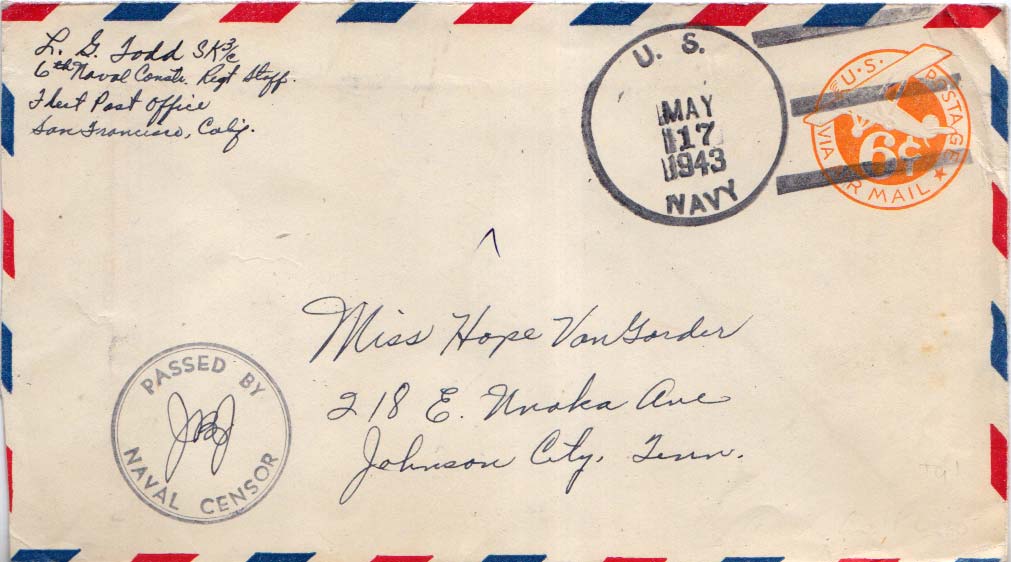 L. G. Todd SK3/c
6th Naval Constr. Regt Staff.
Fleet Post Office
San Francisco, Calif.
U. S.
MAY
17
1943
NAVY
U.S. POSTAGE
6¢
VIA AIR MAIL
Miss Hope VanGorder
218 E. Unaka Ave
Johnson City, Tenn.
PASSED BY
JBJ
NAVAL CENSOR